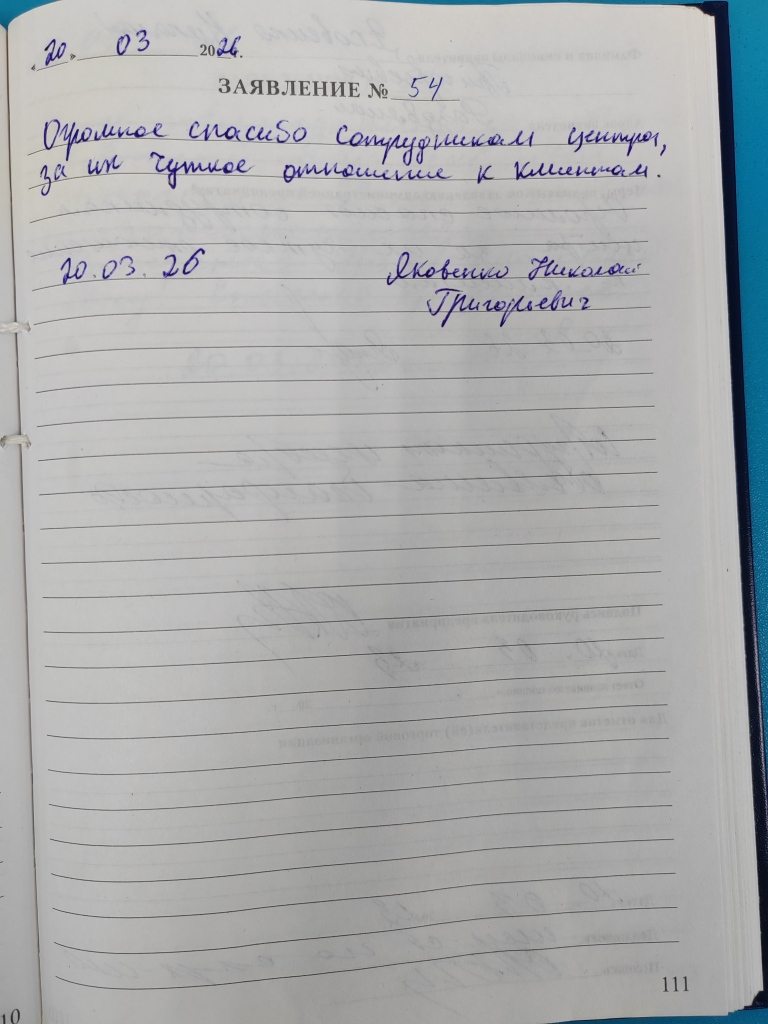 «20» 03 2026г.
ЗАЯВЛЕНИЕ № 54
Огромное спасибо сотрудникам центра,
за их чуткое отношение к клиентам.
20.03.26
Яковенко Николай
Григорьевич
111
10